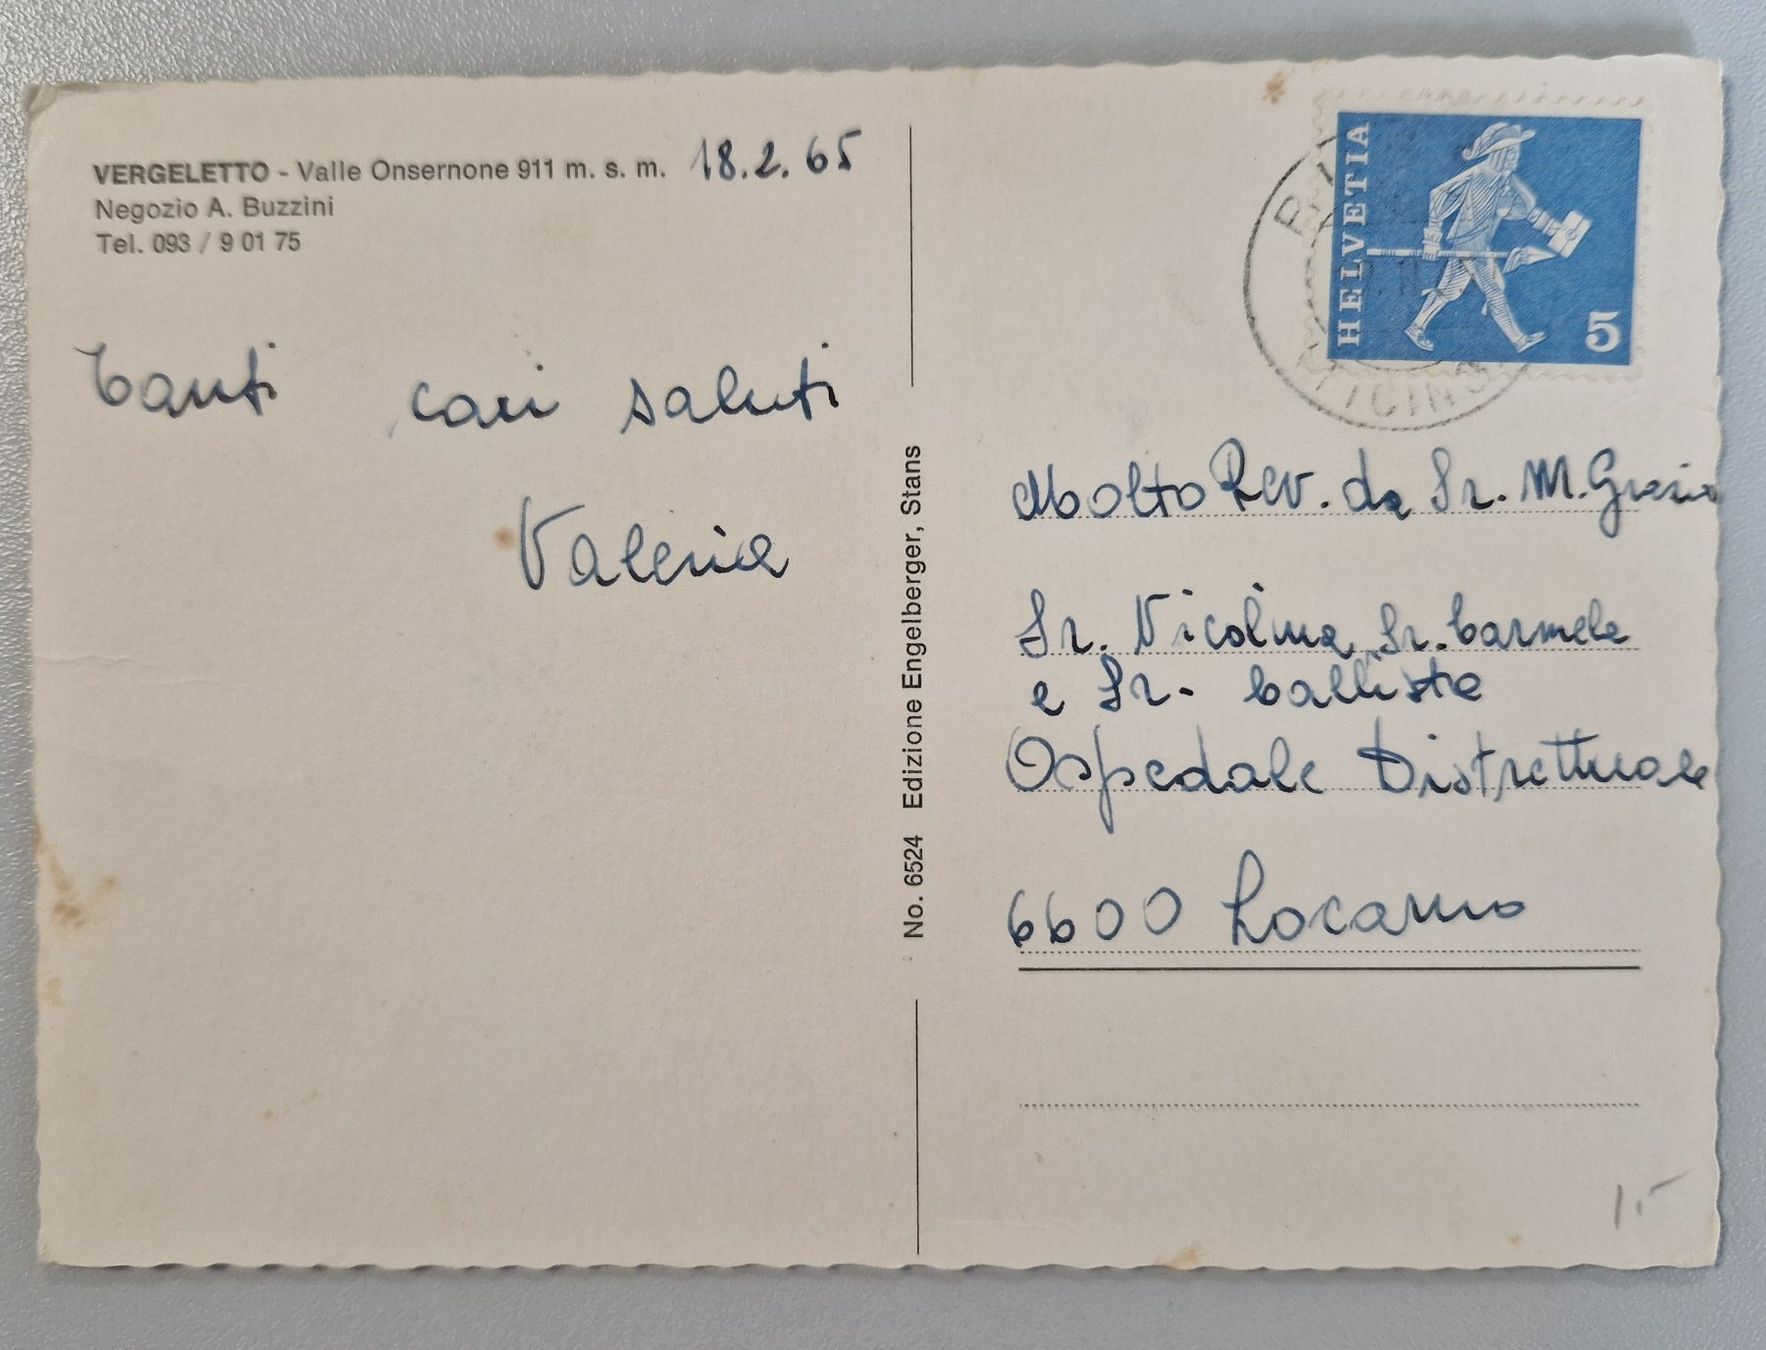 VERGELETTO - Valle Onsernone 911 m. s. m. 18.2.65
Negozio A. Buzzini
Tel. 093 / 9 01 75
Tanti cari saluti
Valeria
No. 6524 Edizione Engelberger, Stans
HELVETIA
5
TICINO
Molto Rev. da Sr. M. Grazia
Sr. Nicolina, Sr. Carmela
e Sr. Callista
Ospedale Distrettuale
6600 Locarno
1.-